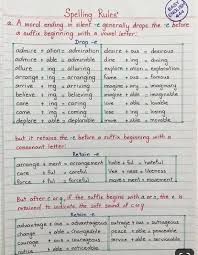 Spelling Rules
a. A word ending in silent -e generally drops the -e before
a suffix beginning with a vowel letter.
Drop -e
admire + ation = admiration desire + ous = desirous
admire + able = admirable dine + ing = dining
allure + ing = alluring explore + ation = exploration
arrange + ing = arranging fame + ous = famous
arrive + ing = arriving imagine + ary = imaginary
believe + ing = believing imagine + able = imaginable
care + ing = caring love + able = lovable
come + ing = coming lose + ing = losing
deplore + able = deplorable move + able = movable
but it retains the -e before a suffix beginning with a
consonant letter:
Retain -e
arrange + ment = arrangement hate + ful = hateful
care + ful = careful like + ness = likeness
force + ful = forceful move + ment = movement
But after c or g, if the suffix begins with a or o, the -e is
retained to indicate the soft sound of c or g
Retain -e
advantage + ous = advantageous outrage + ous = outrageous
change + able = changeable peace + able = peaceable
courage + ous = courageous service + able = serviceable
notice + able = noticeable